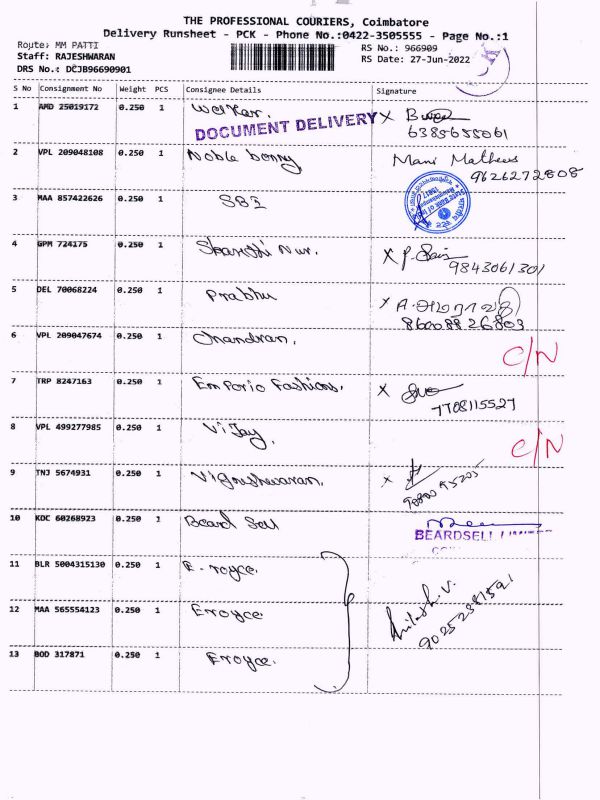 THE PROFESSIONAL COURIERS, Coimbatore
Delivery Runsheet - PCK - Phone No.:0422-3505555 - Page No.:1
Route: MM PATTI
RS No.: 966909
Staff: RAJESHWARAN
RS Date: 27-Jun-2022
DRS No.: DCJB96690901
S No Consignment No Weight PCS Consignee Details Signature
1 AMD 25019172 0.250 1 Welker. X
DOCUMENT DELIVERY
6385655061
2 VPL 209048108 0.250 1 Noble benny Mani Mathews
9626272808
3 MAA 857422626 0.250 1 SBI
4 GPM 724175 0.250 1 Shanthi Nur. X
9843061301
5 DEL 70068224 0.250 1 Prabhu X A. அமராவதி
8600882 6803
6 VPL 209047674 0.250 1 Chandran. C/N
7 TRP 8247163 0.250 1 Emporio Fashions. X
7708115527
8 VPL 499277985 0.250 1 Vijay. C/N
9 TNJ 5674931 0.250 1 Vigneshwaran. X
10 KDC 60268923 0.250 1 Beard Sell
BEARDSELL LIMITED
11 BLR 5004315130 0.250 1 E-royce.
12 MAA 565554123 0.250 1 Eroyce
9025281591
13 BOD 317871 0.250 1 Eroyce.